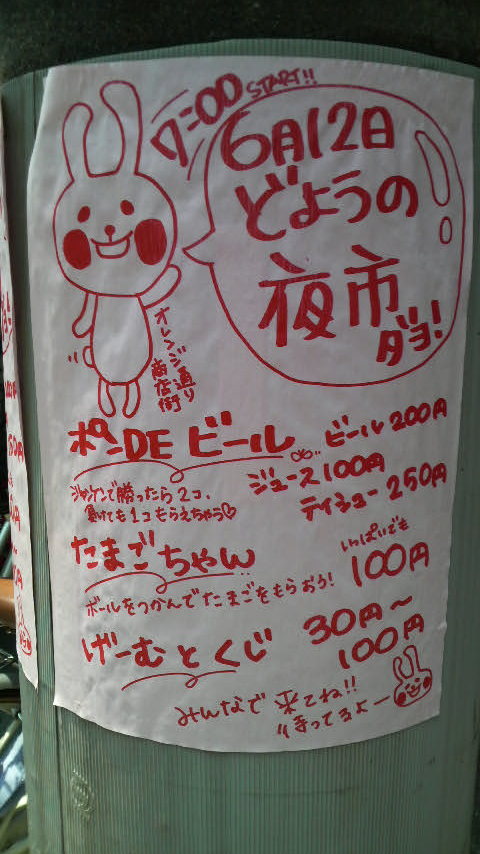 7:00 START!!
6月12日
どようの
夜市
ダヨ!
オレンジ通り
商店街
ポンDEビール
ビール200円
ジュース100円
ティシュー250円
ジャンケンで勝ったら2コ、
負けても1コもらえちゃう♡
たまごちゃん
いっぱいでも
100円
ボールをつかんでたまごをもらおう!
げーむとくじ
30円〜
100円
みんなで来てね!!
待ってるよー